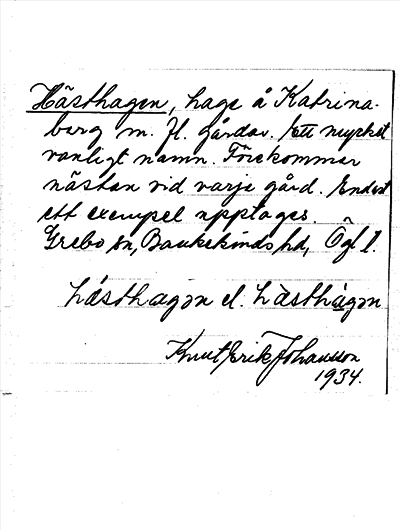 Hästhagen, hage å Katrina-
berg m. fl. gårdar. Ett mycket
vanligt namn. Förekommer
nästan vid varje gård. Endast
ett exempel upptages.
Grebo sn, Bankekinds hd, Ögl.
hásthagən el. hàsthàgən
Knut Erik Johansson
1934.